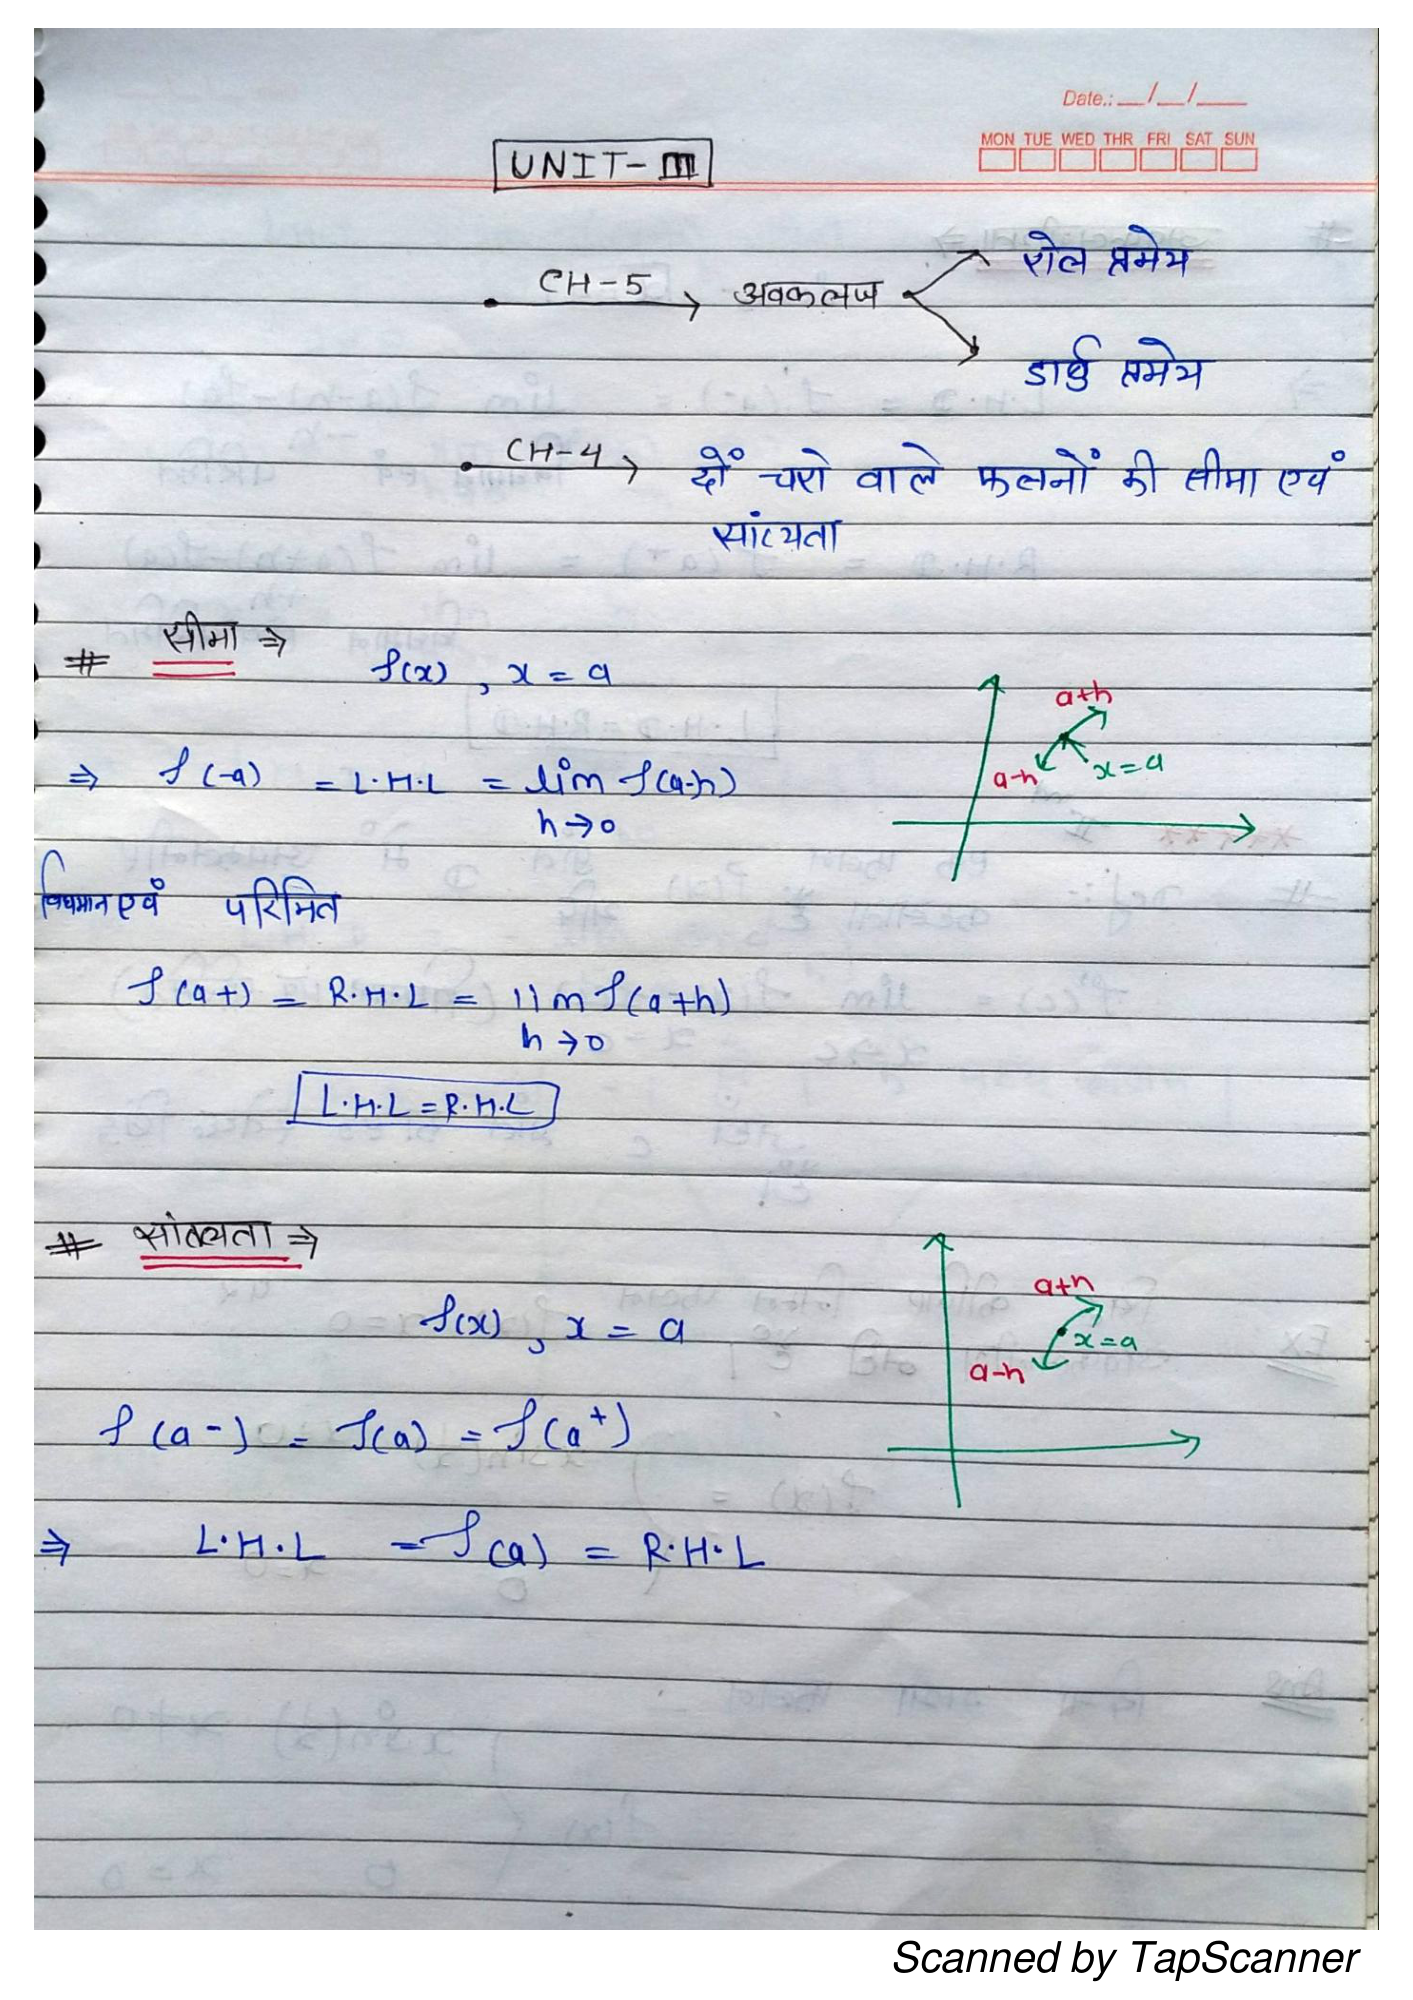 Date.: __/__/___
MON TUE WED THR FRI SAT SUN
UNIT-III
CH-5 → अवकलज
रोल प्रमेय
डार्बु प्रमेय
CH-4 → दों चरो वाले फलनों की सीमा एवं
सांत्यता
# सीमा ⇒
f(x), x = a
a+h
a-h
x=a
⇒ f(-a) = L.H.L = lim f(a-h)
h→0
विधमान एवं परिमित
f(a+) = R.H.L = lim f(a+h)
h→0
L.H.L = R.H.L
# सांतत्यता ⇒
f(x), x = a
a+h
x=a
a-h
f(a-) = f(a) = f(a⁺)
⇒ L.H.L = f(a) = R.H.L
Scanned by TapScanner